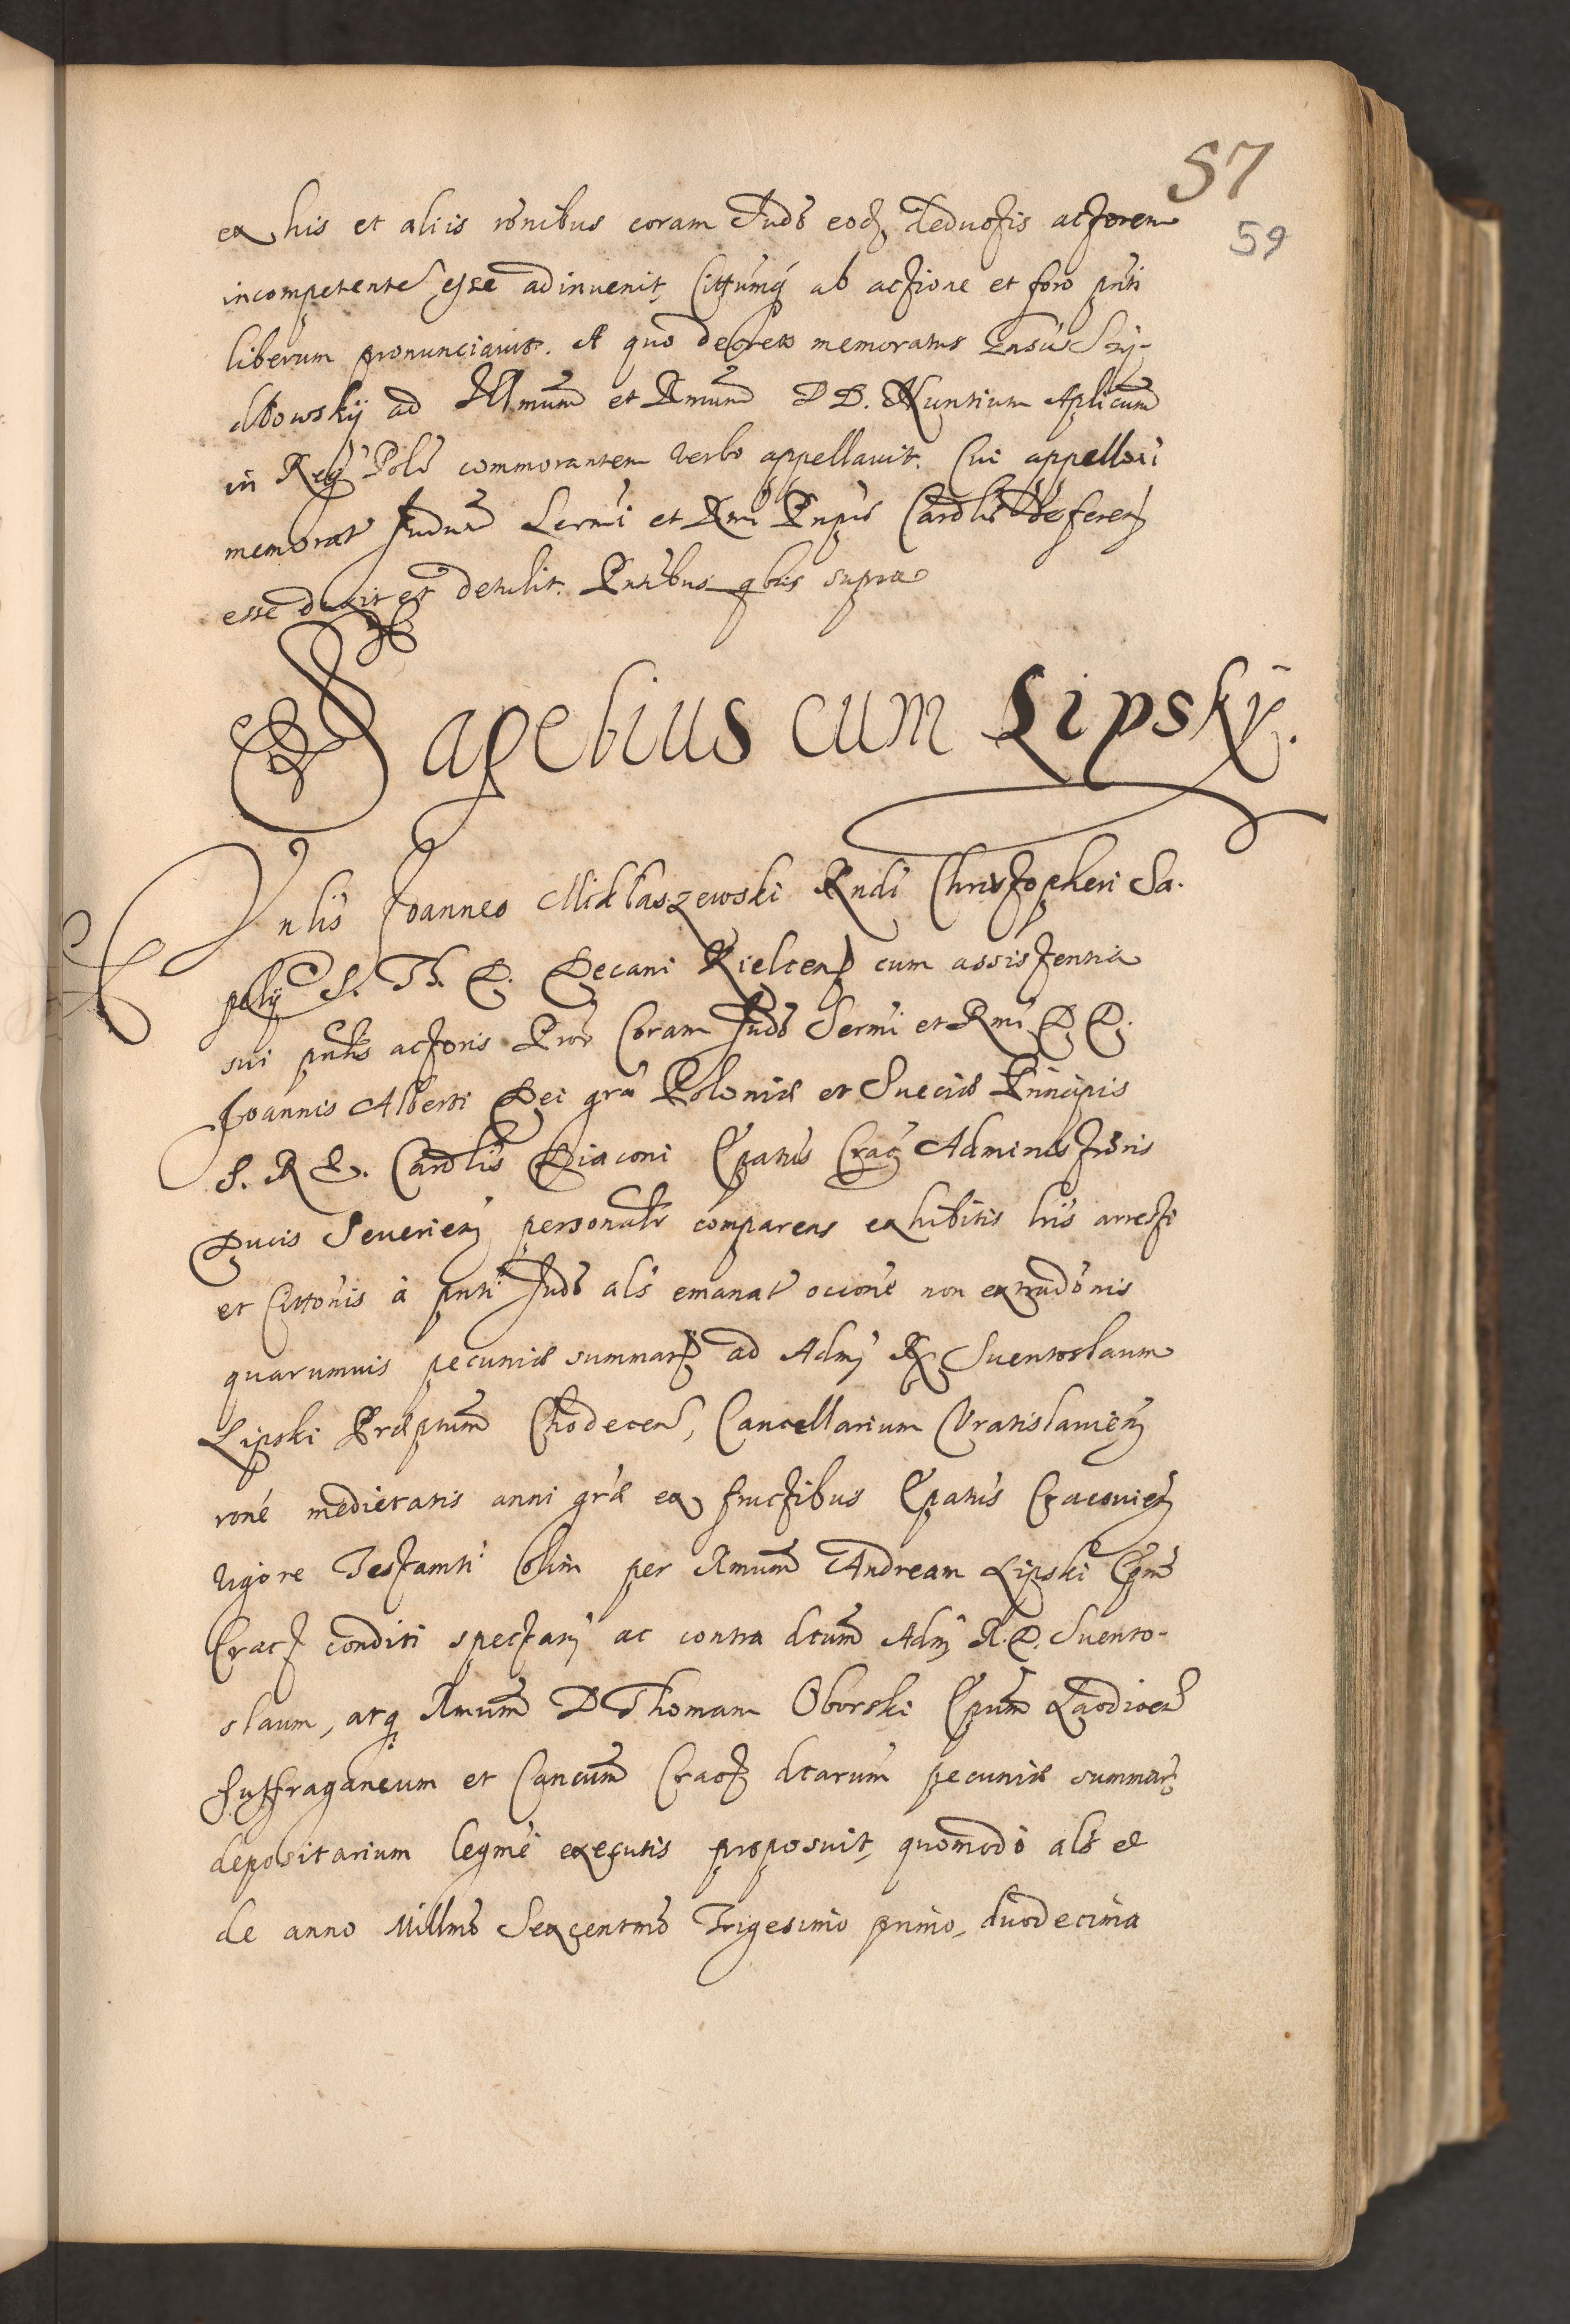 57
59
ex his et aliis rõnibus coram Judõ eodē deductis actorem
incompetentē esse adinvenit, Cittũmq́ ab actione et foro pñti
liberum pronunciavit. A quo decreto memoratus
dłowskÿ ad Illmum̄ et Rmum̄ D D. Nuntium Aplicum̄
in Reg Polo commorantem verbo appellavit. Cui appelloi
memorat Judm̄ Sermi et Rmi Pnpis Cardlis deferenȝ
esse duxit et detulit. Pntibus qbus supra
Sapelius cum Lipskÿ.
Vnlis Joannes Miklaszewski Rndi Christopheri Sa-
pelÿ S. Th. D. Decani Kielcen cum assistentia
sui pntis actoris Pror Coram Judo Sermi et Rmi D. D.
Joannis Alberti Dei gra Poloniæ et Sueciæ Principis
S. R. E. Cardlis Diaconi Epatus Crac Administrõris
Ducis Severienȝ personalr comparens exhibitis lris arresti
et Cittonis à pnti Judo als emanat occone non extradonis
quarumvis pecuniæ summarȝ ad Adm R. D. Suentoslaum
Lipski Præptum̄ Chodecen, Cancellarium Vratislavienȝ
rone medietatis anni græ ex fructibus Epatus Cracovienȝ
vigore Testamti olim per Rmum̄ Andream Lipski Epm̄
Crac conditi spectanȝ ac contra dctum̄ Adm R. D. Suento-
slaum, atq Rmum̄ D Thomam Oborski Epum̄ Laodicen
suffraganeum et Cancum̄ Crac dctarum pecuniæ summarȝ
depositarium legme executis proposuit, quomodo als et
de anno Millmo Sexcentmo Trigesimo primo, duodecima